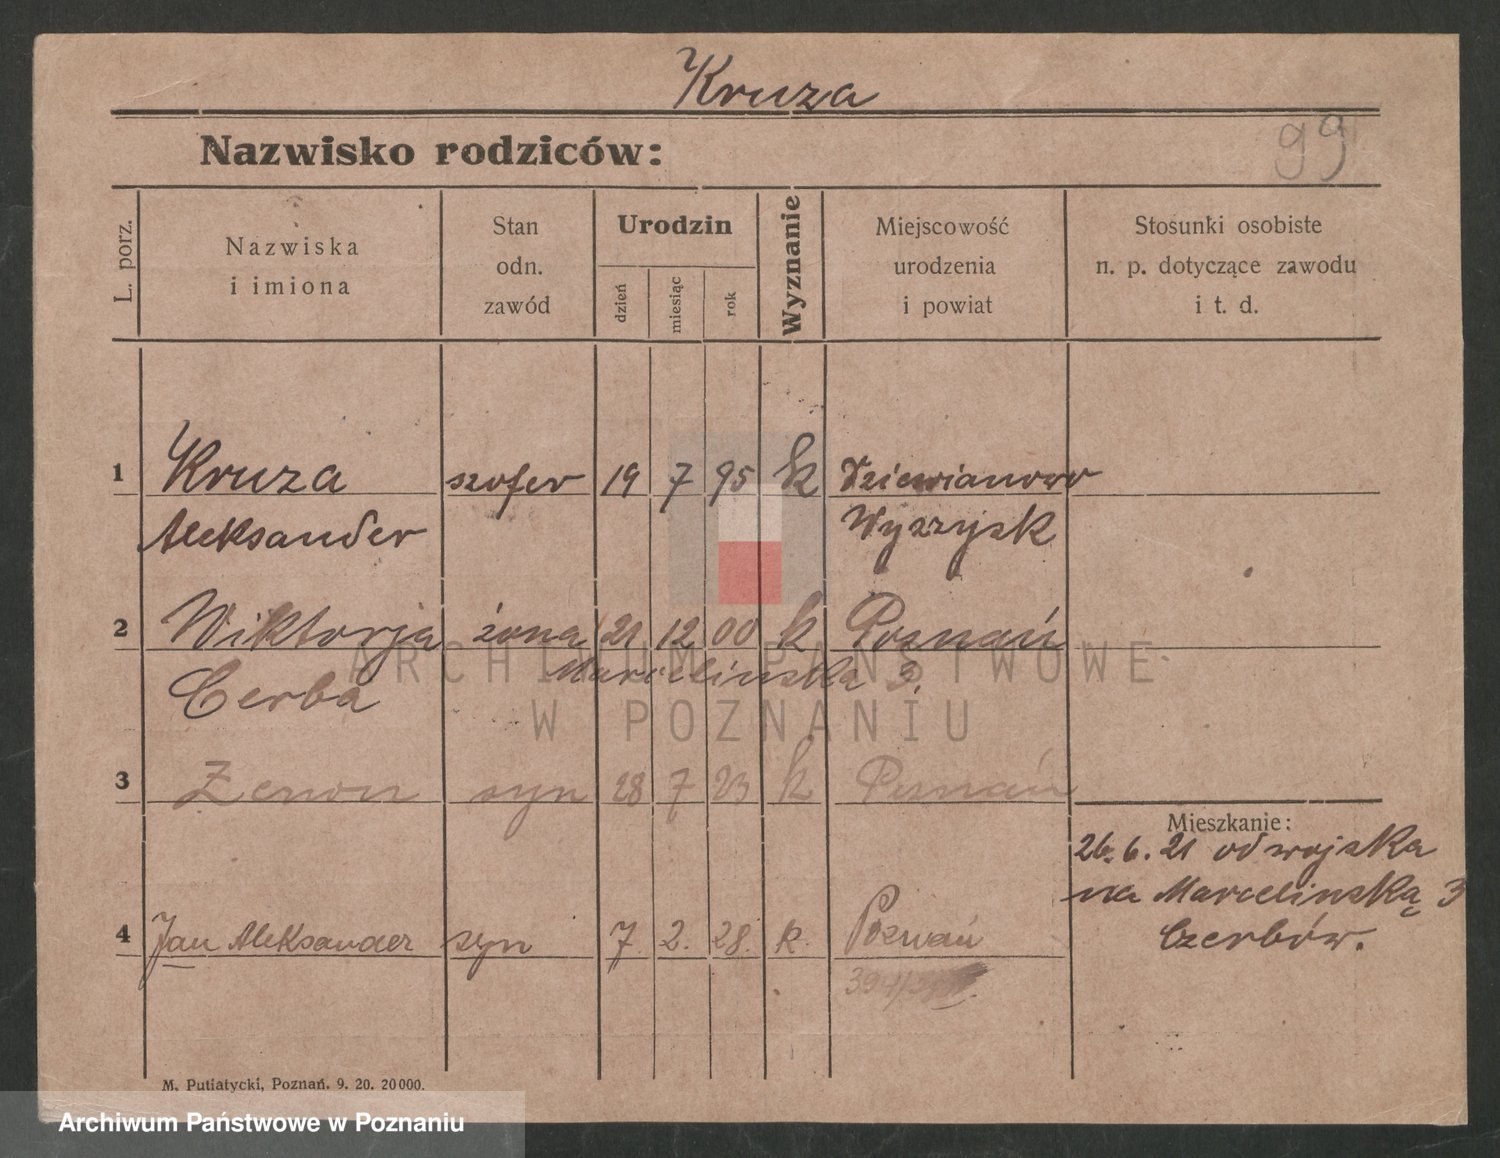 Kruza
Nazwisko rodziców:
99
L. porz.
Nazwiska
i imiona
Stan
odn.
zawód
Urodzin
dzień
miesiąc
rok
Wyznanie
Miejscowość
urodzenia
i powiat
Stosunki osobiste
n. p. dotyczące zawodu
i t. d.
1 Kruza szofer 19 7 95 k Dziewianowo
Aleksander Wyrzysk
2 Wiktorja żona 21 12 00 k Poznań
Cerba Marcelińska 3.
3 Zenon syn 28 7 23 k Poznań
Mieszkanie:
26. 6. 21 od wojska
na Marcelinską 3
Czerbów.
4 Jan Aleksander syn 7. 2. 28. k. Poznań
M. Putiatycki, Poznań. 9. 20. 20000.
ARCHIWUM PAŃSTWOWE
W POZNANIU
Archiwum Państwowe w Poznaniu